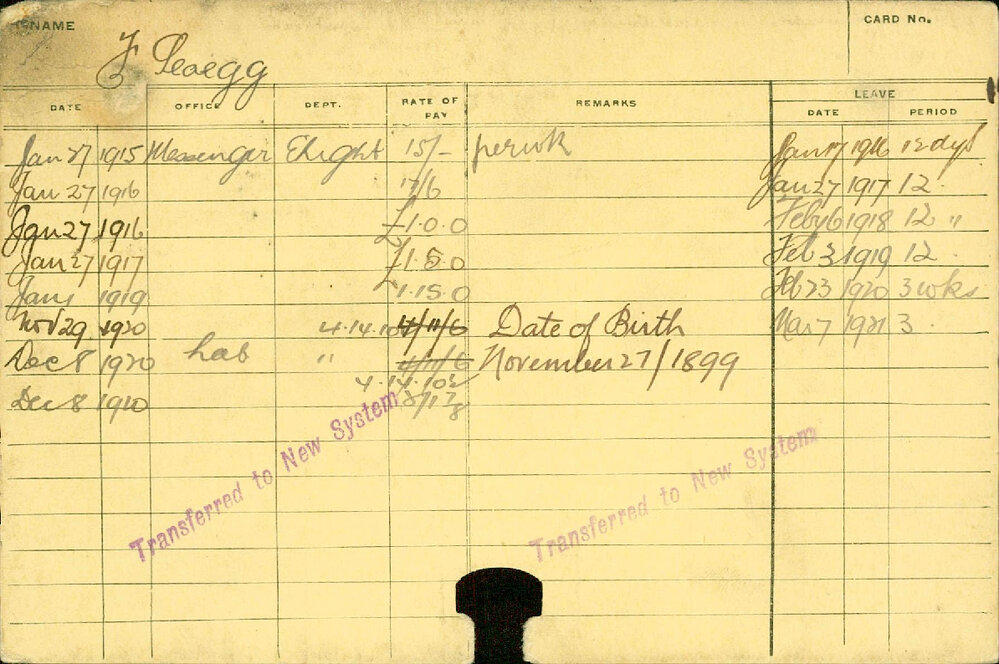 NAME CARD No.
F
DATE OFFICE DEPT. RATE OF PAY REMARKS LEAVE
DATE PERIOD
Jan 27 1915 Messenger 15/- per wk Jan 17 1916 12 dys
Jan 27 1916 17/6 Jan 27 1917 12.
Jan 27 1916 £1.0.0 Feby 6 1918 12 "
Jan 27 1917 £1.5.0 Feb 3 1919 12.
Jan 1 1919 £1.15.0 Feb 23 1920 3 wks
Nov 29. 1920 4.14.10½ 4/11/6 Date of Birth Mar 7 1921 3.
Dec 8 1920 " 4/11/6 November 27/1899
4.14.10½
Dec 8 1920
Transferred to New System
Transferred to New System